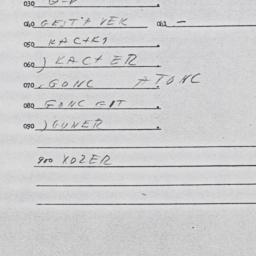 030
040 GEST'A VEK 042 —
050 KACHKI
060 ) KACHER
070 . GONC ATONC
080 GONC EIT
090 ) GUNER
900 XOZER